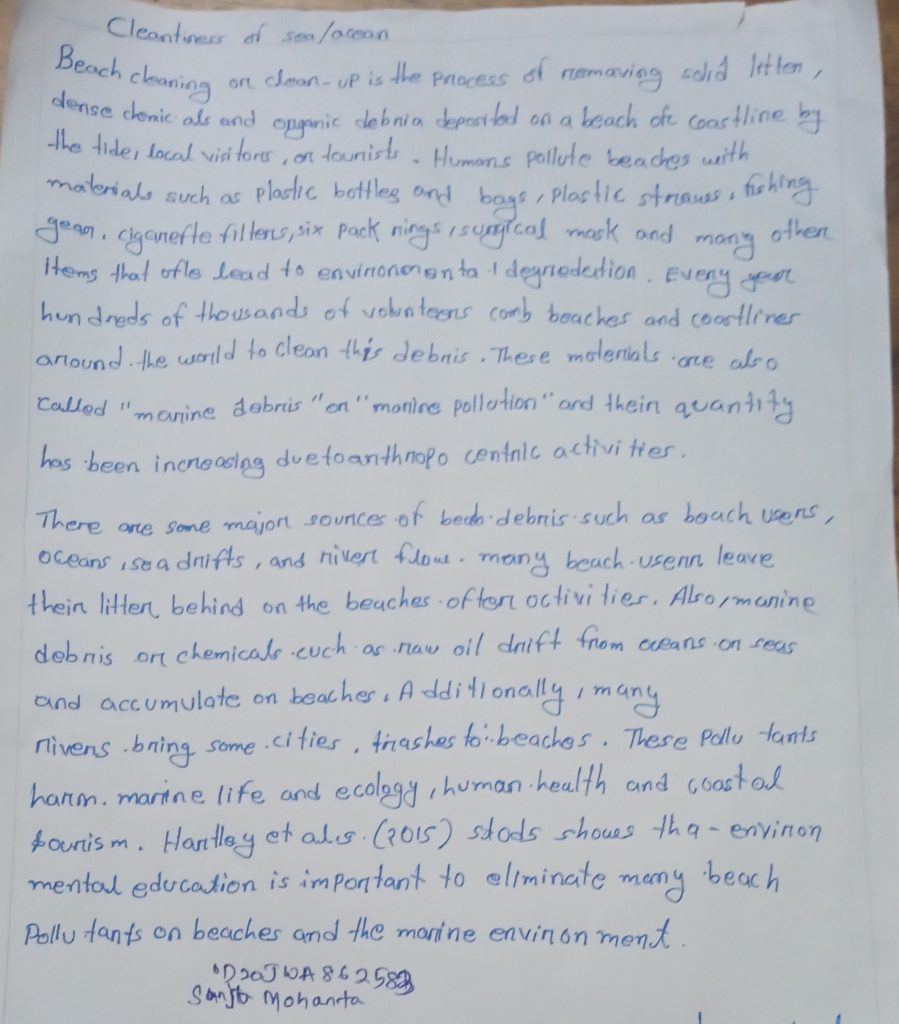 Cleantiness of sea/ocean
Beach cleaning or clean-up is the process of removing solid litter,
dense chemic als and organic debria deposited on a beach or coastline by
the tide, local visitors, or tourists. Humans pollute beaches with
materials such as plastic bottles and bags, plastic straws, fishing
gear, cigarette filters, six pack rings, surgical mask and many other
Items that ofle lead to environmenta l degradation. Every year
hundreds of thousands of volunteers comb beaches and coastlines
around the world to clean this debris. These materials are also
called "marine debris" or "marine pollution" and their quantity
has been increasing due to anthropo centric activities.
There are some major sources of beach debris such as beach users,
oceans, sea drifts, and river flow. many beach users leave
their litter behind on the beaches after activities. Also, marine
debris or chemicals such as raw oil drift from oceans or seas
and accumulate on beaches. Additionally, many
rivers bring some cities, trashes to beaches. These Pollu tants
harm marine life and ecology, human health and coastal
tourism. Hartley et al.s. (2015) shows tha-environ
mental education is important to eliminate many beach
Pollu tants on beaches and the marine environ ment.
Mohanta